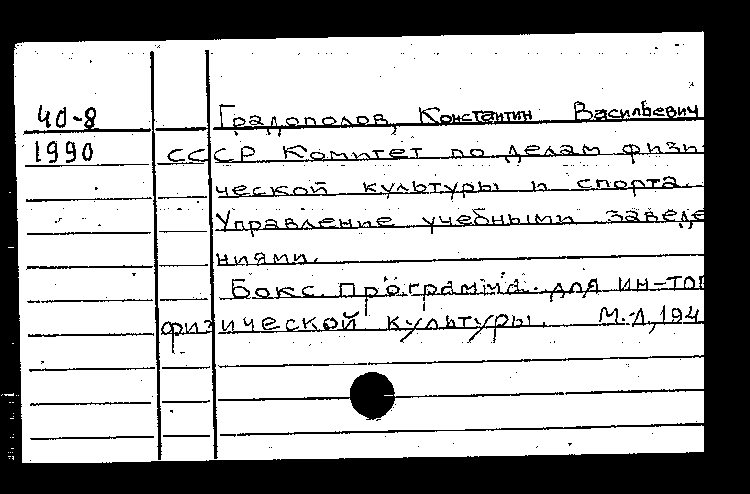 40-8 Градополов, Константин Васильевич
1990 СССР Комитет по делам физи
ческой культуры и спорта.
Управление учебными заведе
ниями.
Бокс. Программа. для ин-тов
физической культуры. М.-Л, 194